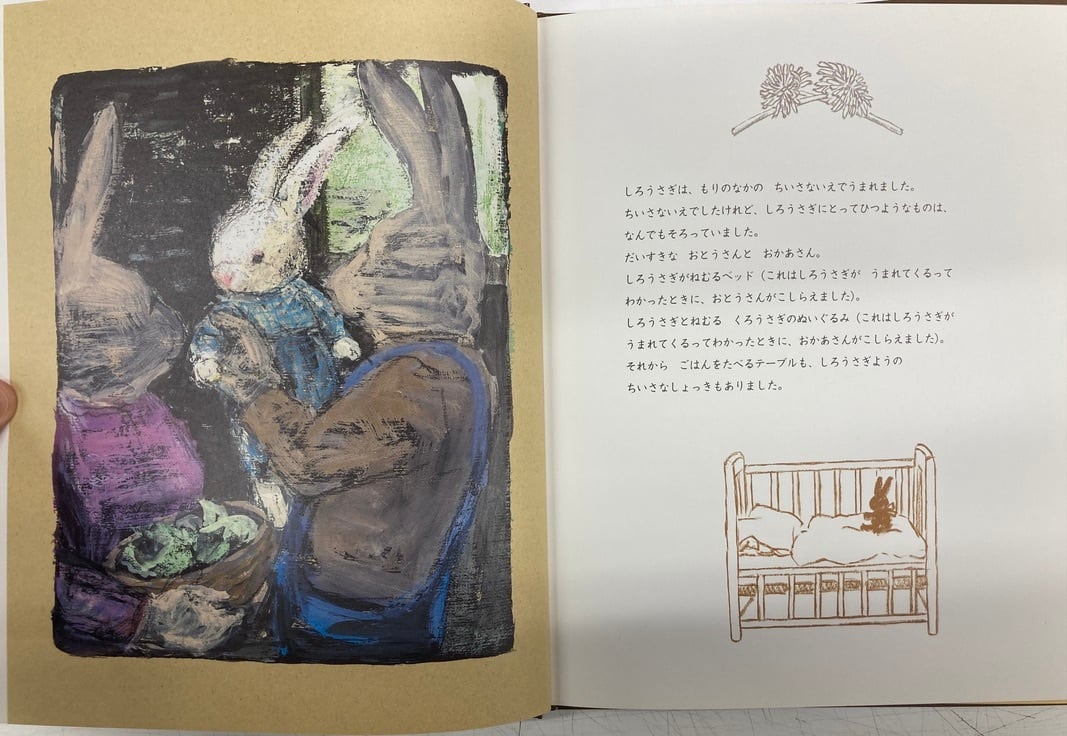 しろうさぎは、もりのなかの　ちいさないえでうまれました。
ちいさないえでしたけれど、しろうさぎにとってひつようなものは、
なんでもそろっていました。
だいすきな　おとうさんと　おかあさん。
しろうさぎがねむるベッド（これはしろうさぎが　うまれてくるって
わかったときに、おとうさんがこしらえました）。
しろうさぎとねむる　くろうさぎのぬいぐるみ（これはしろうさぎが
うまれてくるってわかったときに、おかあさんがこしらえました）。
それから　ごはんをたべるテーブルも、しろうさぎようの
ちいさなしょっきもありました。